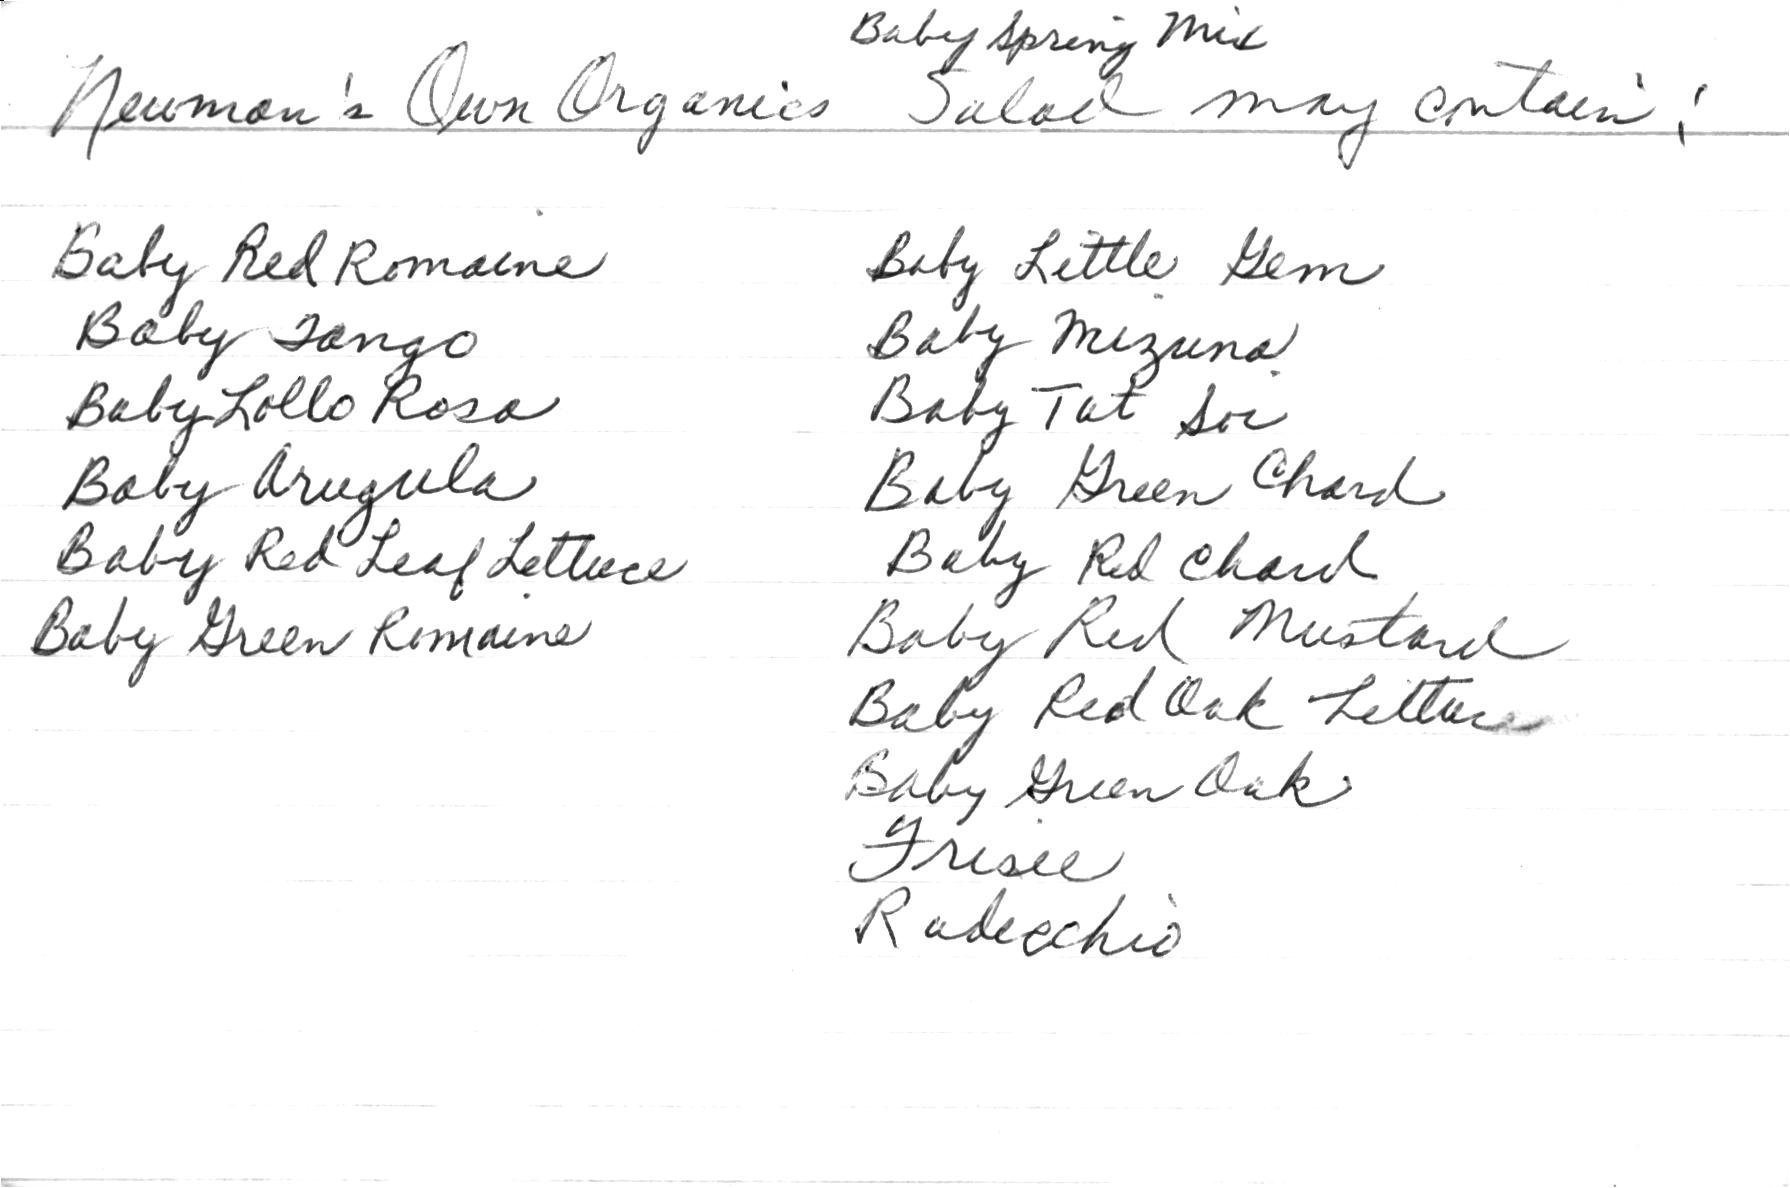 Baby Spring Mix
Newman's Own Organics Salad may contain:
Baby Red Romaine
Baby Tango
Baby Lollo Rosa
Baby Arugula
Baby Red Leaf Lettuce
Baby Green Romaine
Baby Little Gem
Baby Mizuna
Baby Tat Soi
Baby Green Chard
Baby Red Chard
Baby Red Mustard
Baby Red Oak Lettuce
Baby Green Oak
Frisee
Radicchio